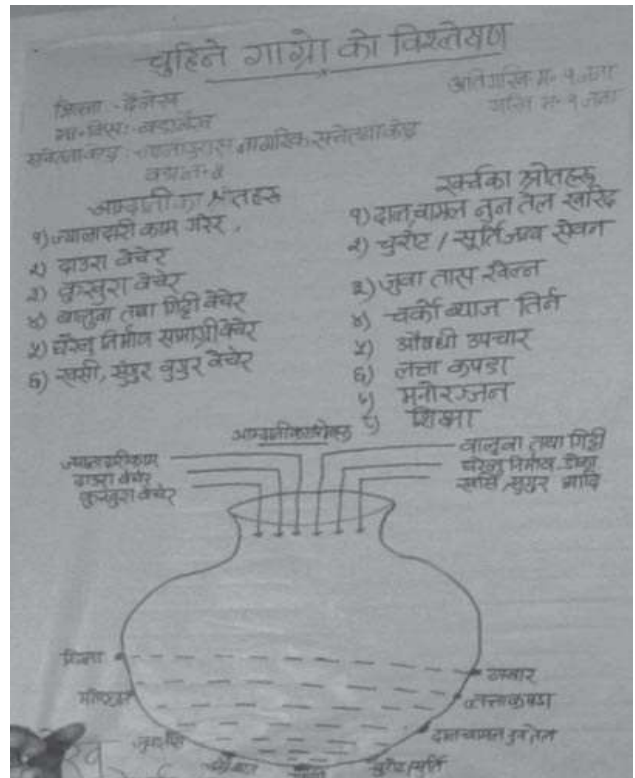 चुहिने गाग्रो को विश्लेषण
जिल्ला :- दैलेख
गा.वि.स.:-
सचेतना केन्द्र :- नागरिक सचेतना केन्द्र
आम्दानीका श्रोतहरु
१) ज्यालादारी काम गरेर,
२) दाउरा बेचेर
३) कुखुरा बेचेर
४) बालुवा तथा गिट्टी बेचेर
५) घरेलु निर्माण सामाग्री बेचेर
६) खसी, सुंगुर वुगुर बेचेर
खर्चका श्रोतहरु
१) दाल, चामल नुन तेल खरिद
२) चुरोट / सूर्तिजन्य सेवन
३) जुवा तास खेल्न
४) चर्को ब्याज तिर्न
५) औषधी उपचार
६) लत्ता कपडा
७) मनोरञ्जन
८) शिक्षा
ज्यालादारी काम
दाउरा बेचेर
कुखुरा बेचेर
बालुवा तथा गिट्टी
घरेलु निर्माण
खसि, सुगुर आदि
शिक्षा
लत्ताकपडा
दाल चामल नुन तेल
चुरोट/सुर्ति